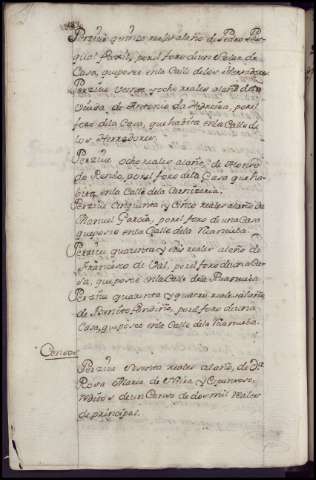 Percive quince reales alaño de Pedro
Casa, que posee enla Calle de los Herradores
Percive veinte y ocho reales alaño dela
Viuda de Antonio da Hermosa, por el
foro dela Casa, que havita enla Calle de
los Herradores.
Percive ocho reales alaño, de Alonso
de Pondo, por el foro dela Casa que ha-
vita enla Calle dela Carnizeria.
Percive Cinquenta y Cinco reales alaño de
Manuel Garcia, por el foro de una Casa
que posee enla Calle dela
Percive quarenta y seis reales alaño de
Francisco de Val, por el foro de una Ca-
sa, que posee enla Calle dela
Percive quarenta y quatro reales alaño
de Benito por el foro de una
Casa, que posee enla Calle dela
Censos
Percive sesenta reales alaño, de Dª
Rosa Maria de Neira y
de un Censo de dos mil reales
de principal.